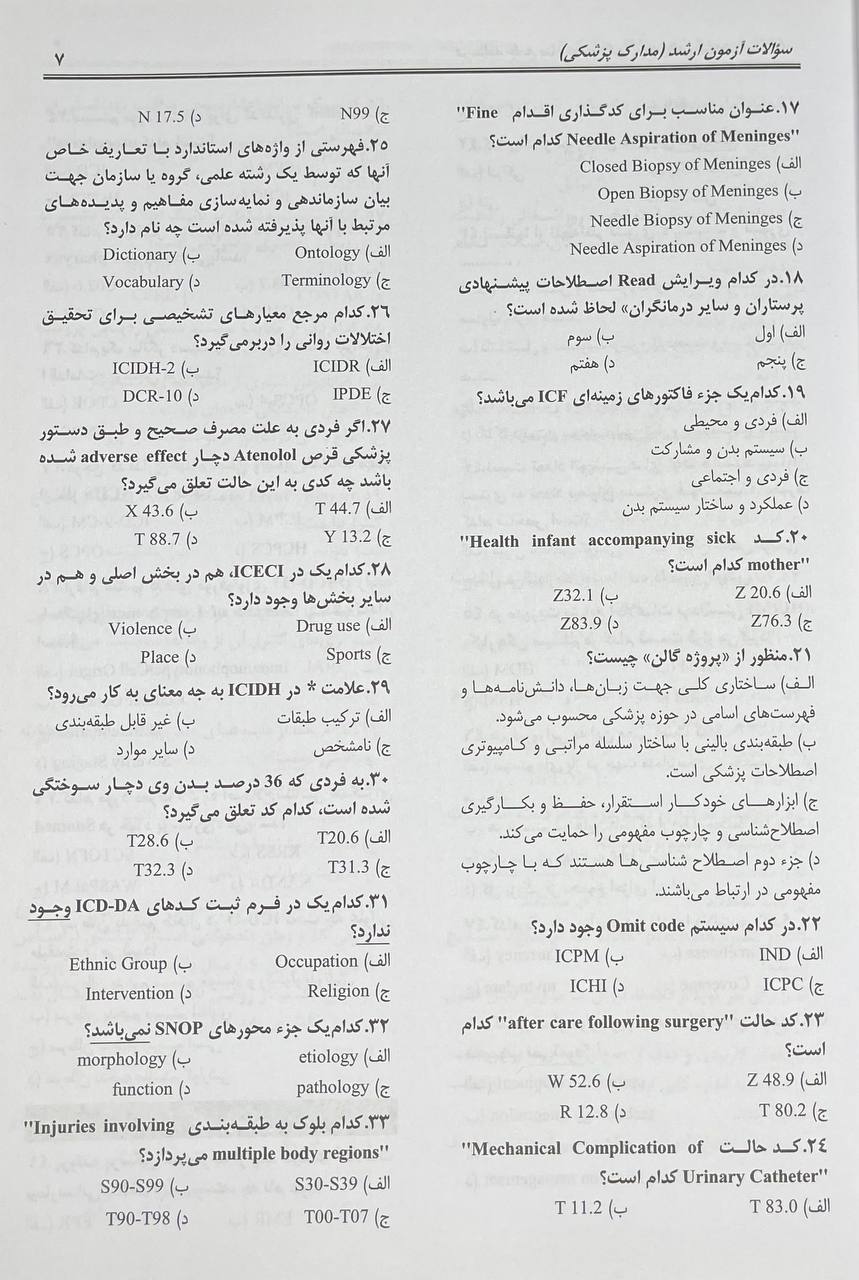 سؤالات آزمون ارشد (مدارک پزشکی)
۷
۱۷.عنوان مناسب برای کدگذاری اقدام "Fine
Needle Aspiration of Meninges" کدام است؟
الف) Closed Biopsy of Meninges
ب) Open Biopsy of Meninges
ج) Needle Biopsy of Meninges
د) Needle Aspiration of Meninges
۱۸.در کدام ویرایش Read اصطلاحات پیشنهادی
پرستاران و سایر درمانگران» لحاظ شده است؟
الف) اول ب) سوم
ج) پنجم د) هفتم
۱۹.کدام‌یک جزء فاکتورهای زمینه‌ای ICF می‌باشد؟
الف) فردی و محیطی
ب) سیستم بدن و مشارکت
ج) فردی و اجتماعی
د) عملکرد و ساختار سیستم بدن
۲۰.کد "Health infant accompanying sick
mother" کدام است؟
الف) Z 20.6 ب) Z32.1
ج) Z76.3 د) Z83.9
۲۱.منظور از «پروژه گالن» چیست؟
الف) ساختاری کلی جهت زبان‌ها، دانش‌نامه‌ها و
فهرست‌های اسامی در حوزه پزشکی محسوب می‌شود.
ب) طبقه‌بندی بالینی با ساختار سلسله مراتبی و کامپیوتری
اصطلاحات پزشکی است.
ج) ابزارهای خودکار استقرار، حفظ و بکارگیری
اصطلاح‌شناسی و چارچوب مفهومی را حمایت می‌کند.
د) جزء دوم اصطلاح شناسی‌ها هستند که با چارچوب
مفهومی در ارتباط می‌باشند.
۲۲.در کدام سیستم Omit code وجود دارد؟
الف) IND ب) ICPM
ج) ICPC د) ICHI
۲۳.کد حالت "after care following surgery" کدام
است؟
الف) Z 48.9 ب) W 52.6
ج) T 80.2 د) R 12.8
۲٤.کد حالت "Mechanical Complication of
Urinary Catheter" کدام است؟
الف) T 83.0 ب) T 11.2
ج) N99 د) N 17.5
۲۵.فهرستی از واژه‌های استاندارد با تعاریف خاص
آنها که توسط یک رشته علمی، گروه یا سازمان جهت
بیان سازماندهی و نمایه‌سازی مفاهیم و پدیده‌های
مرتبط با آنها پذیرفته شده است چه نام دارد؟
الف) Ontology ب) Dictionary
ج) Terminology د) Vocabulary
۲۶.کدام مرجع معیارهای تشخیصی برای تحقیق
اختلالات روانی را دربرمی‌گیرد؟
الف) ICIDR ب) ICIDH-2
ج) IPDE د) DCR-10
۲۷.اگر فردی به علت مصرف صحیح و طبق دستور
پزشکی قرص Atenolol دچار adverse effect شده
باشد چه کدی به این حالت تعلق می‌گیرد؟
الف) T 44.7 ب) X 43.6
ج) Y 13.2 د) T 88.7
۲۸.کدام‌یک در ICECI، هم در بخش اصلی و هم در
سایر بخش‌ها وجود دارد؟
الف) Drug use ب) Violence
ج) Sports د) Place
۲۹.علامت * در ICIDH به جه معنای به کار می‌رود؟
الف) ترکیب طبقات ب) غیر قابل طبقه‌بندی
ج) نامشخص د) سایر موارد
۳۰.به فردی که 36 درصد بدن وی دچار سوختگی
شده است، کدام کد تعلق می‌گیرد؟
الف) T20.6 ب) T28.6
ج) T31.3 د) T32.3
۳۱.کدام‌یک در فرم ثبت کدهای ICD-DA وجود
ندارد؟
الف) Occupation ب) Ethnic Group
ج) Religion د) Intervention
۳۲.کدام‌یک جزء محورهای SNOP نمی‌باشد؟
الف) etiology ب) morphology
ج) pathology د) function
۳۳.کدام بلوک به طبقه‌بندی "Injuries involving
multiple body regions" می‌پردازد؟
الف) S30-S39 ب) S90-S99
ج) T00-T07 د) T90-T98